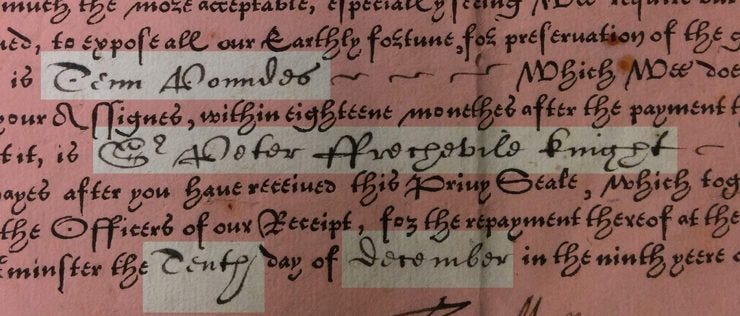 much the more acceptable, especially seeing Wee require our
ed, to expose all our Earthly fortune, for preservation of the g
is Tenn Poundes ~ ~ ~ ~ Which Wee doe
your Assignes, within eighteene monethes after the payment t
it, is Sr Peter ffrechevile knight ~
ayes after you have received this Privy Seale, which tog
the Officers of our Receipt, for the repayment thereof at the
minster the Tenth day of december in the ninth yeere o